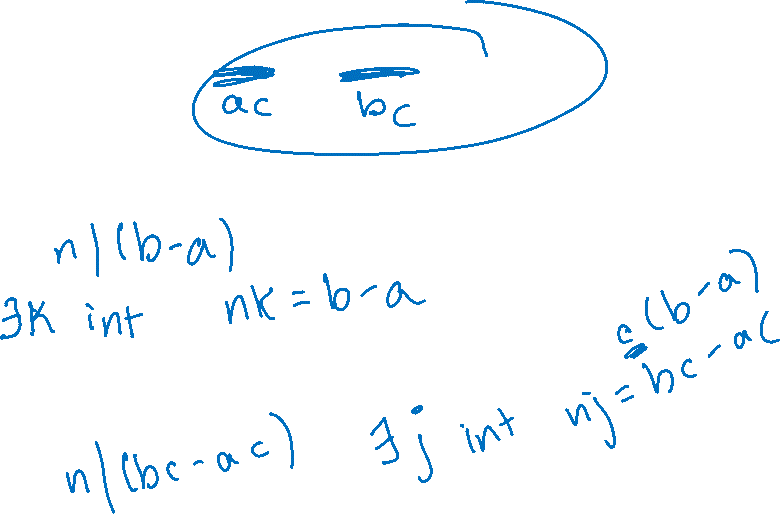 ac bc
n|(b-a)
∃k int nk = b-a
c(b-a)
n|(bc-ac) ∃j int nj = bc-ac